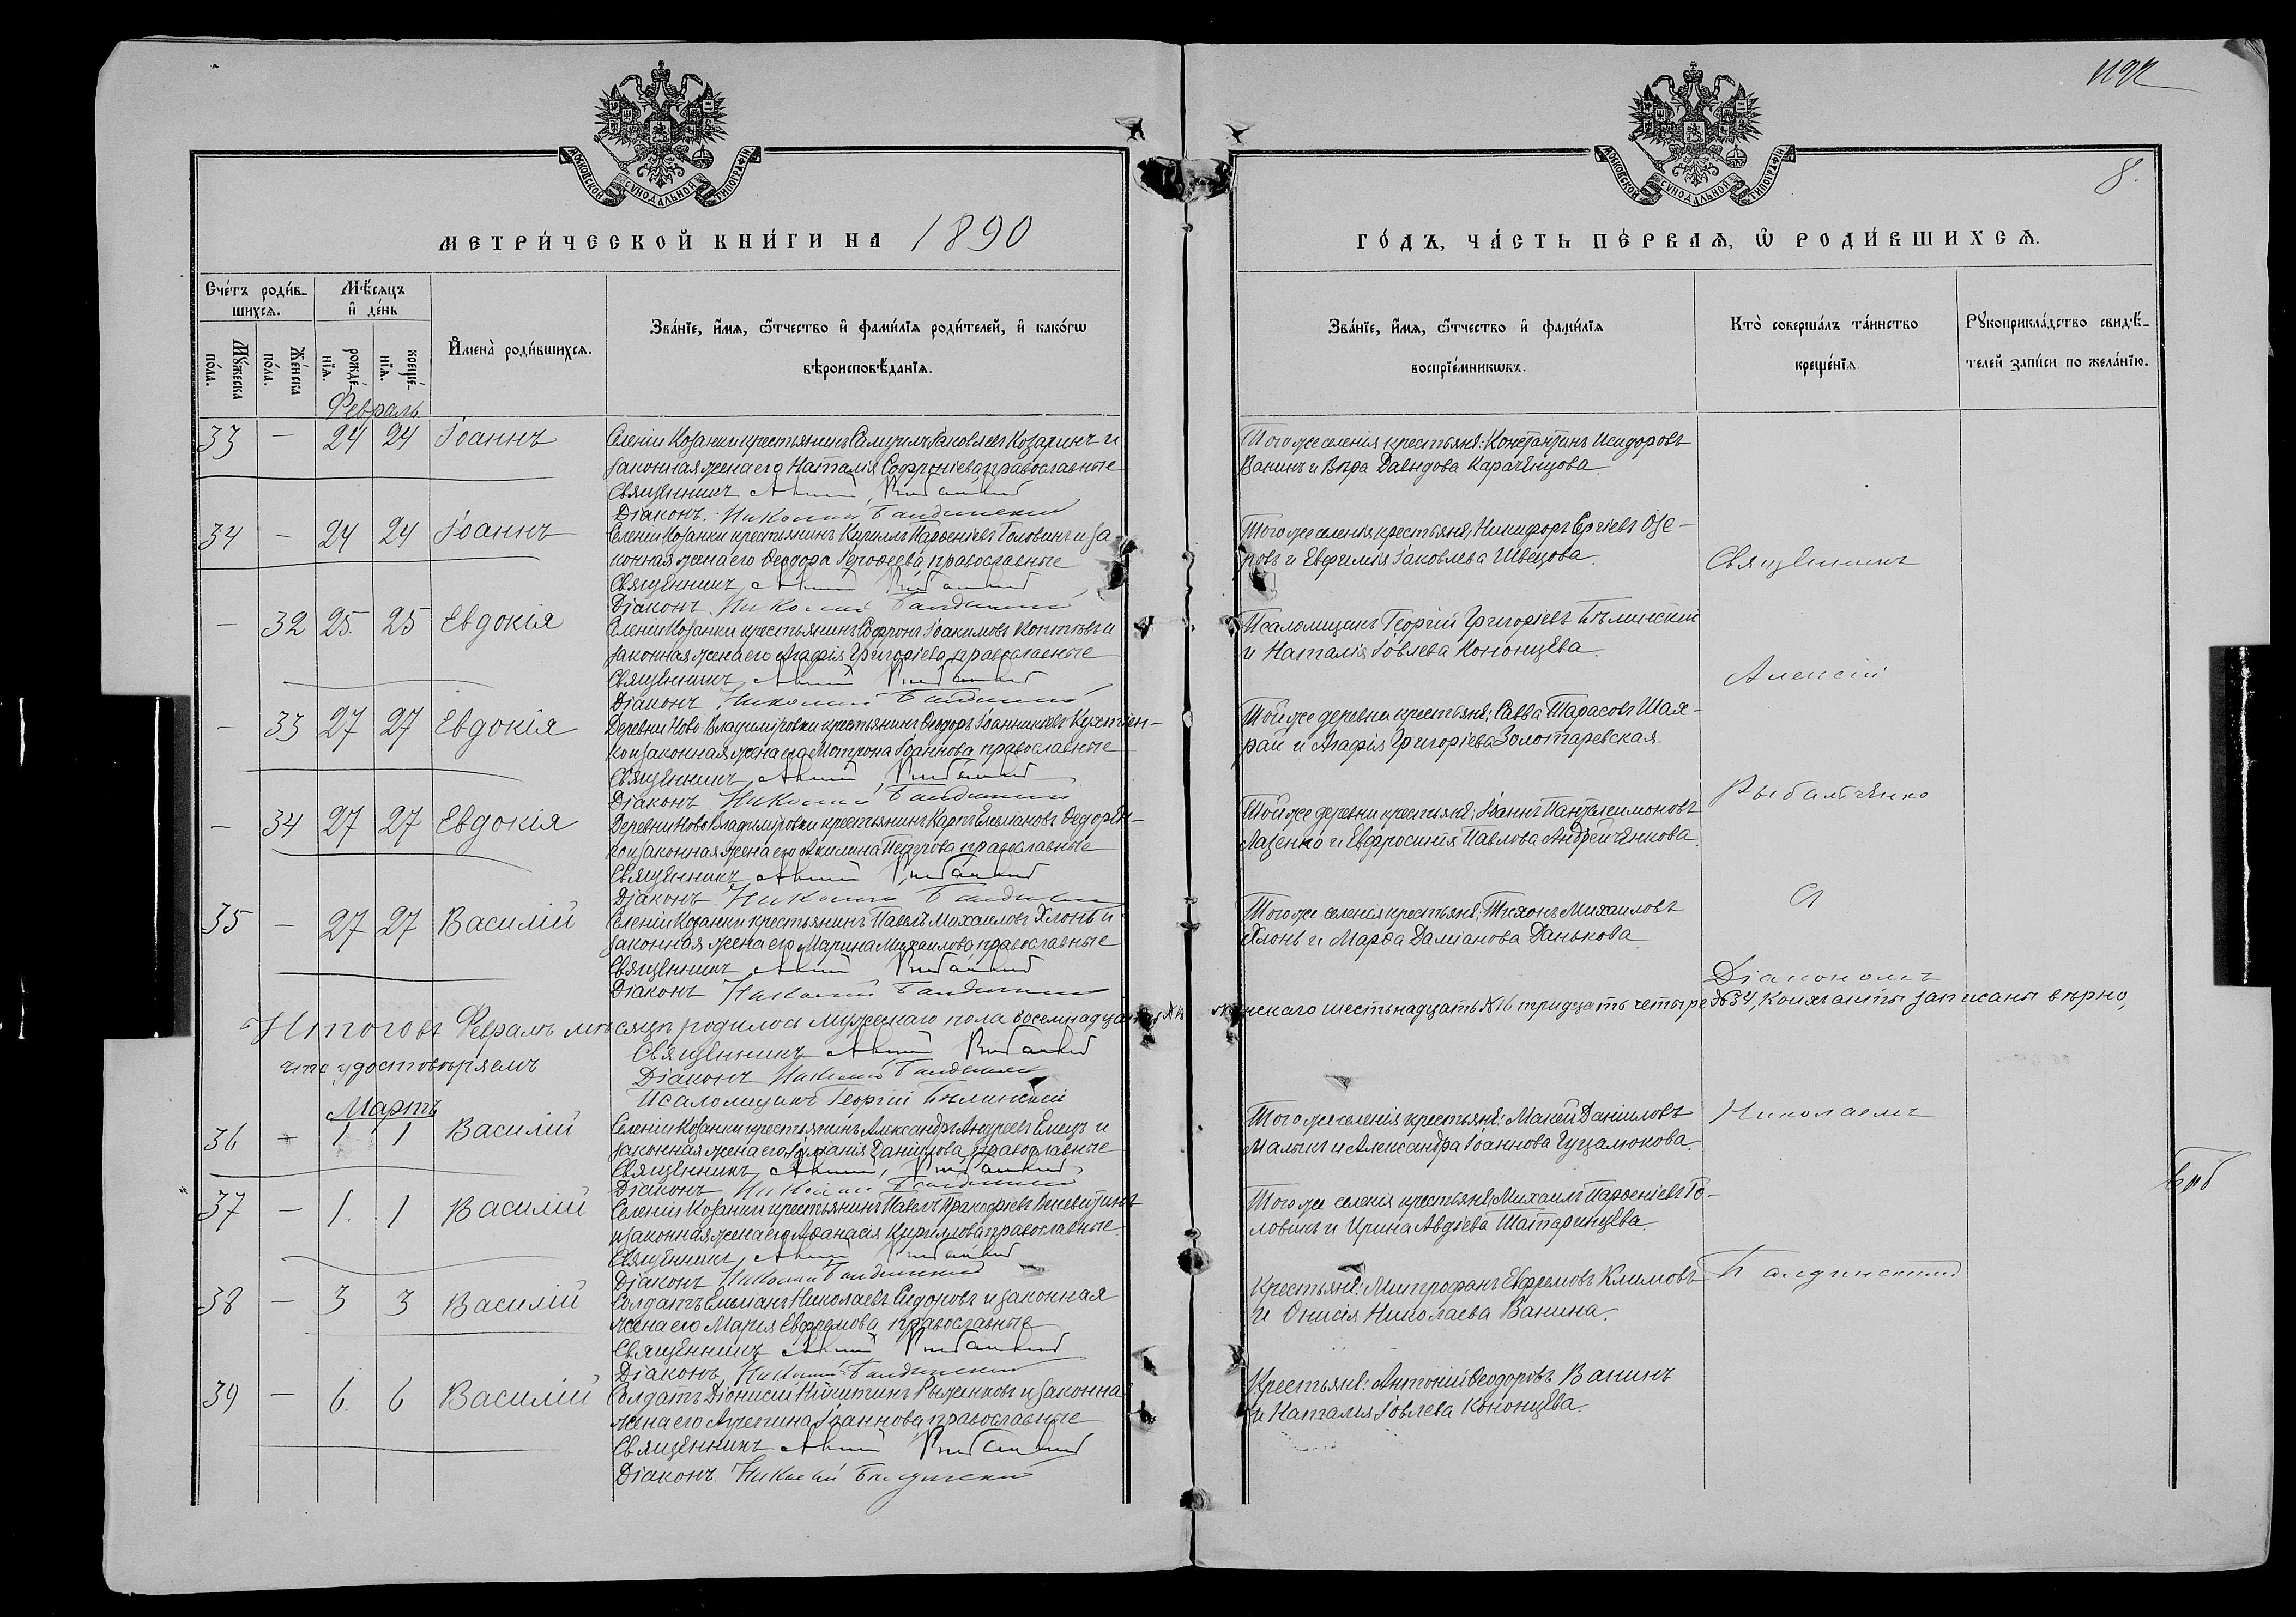 1192
МОСКОВСКОЙ СѴНОДАЛЬНОЙ ТИПОГРАФІИ
МОСКОВСКОЙ СѴНОДАЛЬНОЙ ТИПОГРАФІИ
8.
МЕТРИ́ЧЕСКОЙ КНИ́ГИ НА 1890
ГО́ДЪ, ЧА́СТЬ ПЕ́РВАѦ, Ѡ РОДИ́ВШИХСѦ.
Сче́тъ роди́в-
шихсѧ.
Мѣ́сѧцъ
и҆ де́нь
Мꙋ́жеска
по́ла.
Же́нска
по́ла.
рожде́-
нїѧ.
креще́-
нїѧ.
И҆мена̀ роди́вшихсѧ.
Зва́нїе, и҆́мѧ, ѻ҆́тчество и҆ фами́лїѧ роди́телей, и҆ како́гѡ
вѣроисповѣ́данїѧ.
Зва́нїе, и҆́мѧ, ѻ҆́тчество и҆ фами́лїѧ
воспрїе́мникѡвъ.
Кто̀ соверша́лъ та́инство
креще́нїѧ.
Рꙋкоприкла́дство свидѣ́-
телей за́писи по жела́нїю.
Февраль
33 — 24 24 Іоаннъ
Селенія Козанки крестьянинъ Самуилъ Іаковлевъ Козаринъ и
законная жена его Наталія Софроніева, православные
Священникъ
Діаконъ Николай Балдинскій
Тогоже селенія крестьяне: Константинъ Исидоровъ
Ванинъ и Вѣра Давидова Карачѣнцова
34 — 24 24 Іоаннъ
Селенія Козанки крестьянинъ Кириллъ Парѳеніевъ Головинъ и за-
конная жена его Ѳеодора православные
Священникъ
Діаконъ Николай Балдинскій
Тогоже селенія крестьяне, Никифоръ Сергіевъ Озе-
ровъ и Евфимія Іаковлева Швецова.
— 32 25. 25 Евдокія
Селенія Козанки крестьянинъ Софронъ Іоакимовъ Коптѣвъ и
законная жена его Агафія Григоріева, православные
Священникъ
Діаконъ Николай Балдинскій
Псаломщикъ Георгій Григоріевъ Бѣлинскій
и Наталія Іовлева Кононцева
— 33 27 27 Евдокія
Деревни Ново-Владиміровки крестьянинъ Ѳеодоръ Іоанникіевъ
законная жена его Мотрона Іоаннова православные
Священникъ
Діаконъ Николай Балдинскій
Тойже деревни крестьяне; Савва Тарасовъ Шах-
рай и Агафія Григоріева Золотаревская
— 34 27 27 Евдокія
Деревни Ново Владиміровки крестьянинъ Карпъ Емеліановъ Ѳедорен-
ко и законная жена его Акилина Петрова православные
Священникъ
Діаконъ Николай Балдинскій
Тойже деревни крестьяне; Іоаннъ Пантелеимоновъ
Лазенко и Евфросинія Павлова Андрейченкова.
35 — 27 27 Василій
Селенія Козанки крестьянинъ Павелъ Михаиловъ Хлонь и
законная жена его Марина Михаилова, православные
Священникъ
Діаконъ Николай Балдинскій
Тогоже селенія крестьяне; Тихонъ Михаиловъ
Хлонь и Марѳа Даміанова Данькова
Священникъ
Алексій
Рыбальченко
съ
Діакономъ
Николаемъ
Балдинскимъ
Итого въ Февралѣ мѣсяцѣ родилось мужескаго пола восемнадцать женскаго шестьнадцать №16 тридцать четыре №34, кои записаны вѣрно,
что удостовѣряемъ
Священникъ
Діаконъ Николай Балдинскій
Псаломщикъ Георгій Бѣлинскій
Мартъ
36 — 1 1 Василій
Селенія Козанки крестьянинъ Александръ Андреевъ Емецъ и
законная жена его Іуліанія Даніилова, православные
Священникъ
Діаконъ Николай Балдинскій
Тогоже селенія крестьяне: Мокей Данииловъ
Малыхъ и Александра Іоаннова Гуцалюкова.
37 — 1. 1 Василій
Селенія Козанки крестьянинъ Павелъ Прокофіевъ
и законная жена его Аѳанасія Кириллова православные
Священникъ
Діаконъ Николай Балдинскій
Тогоже селенія крестьяне; Михаилъ Парѳеніевъ Го-
ловинъ и Ирина Авдіева Татаринцева
38 — 3 3 Василій
Солдатъ Емеліанъ Николаевъ Сидоровъ и законная
жена его Марія Евфремова православные
Священникъ
Діаконъ Николай Балдинскій
Крестьяне: Митрофанъ Евфремовъ Климовъ
и Онисія Николаева Ванина.
39 — 6. 6 Василій
Солдатъ Діонисій Никитинъ Рыженковъ и законна
жена его Іоаннова, православные
Священникъ
Діаконъ Николай Балдинскій
Крестьяне: Антоній Ѳеодоровъ Ванинъ
и Наталія Іовлева Кононцева.